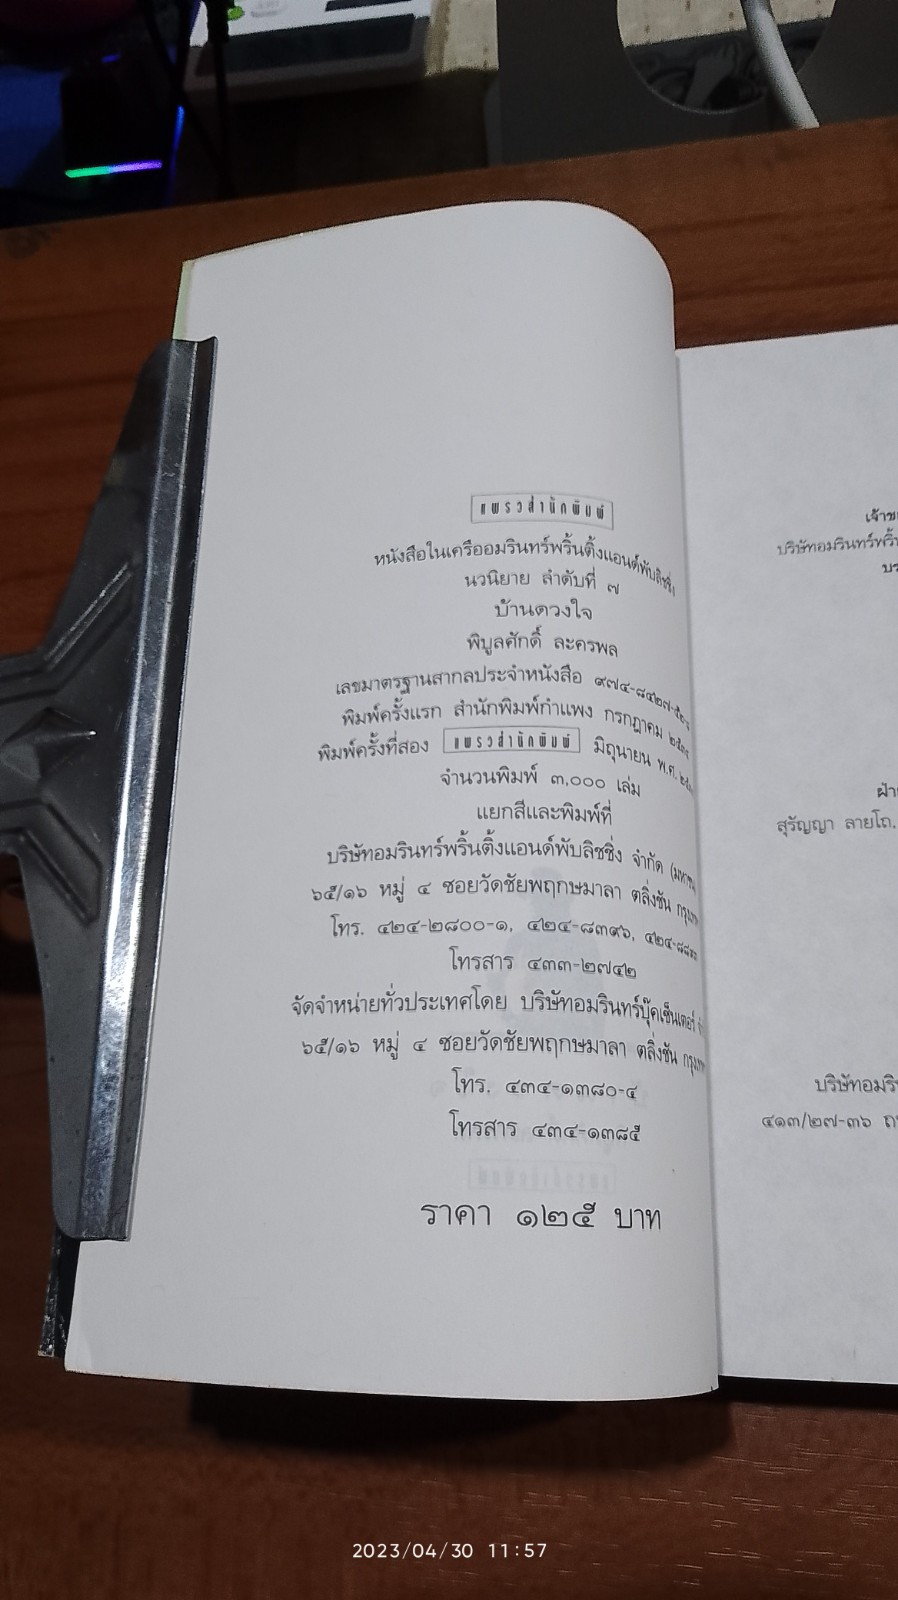 แพรวสำนักพิมพ์
หนังสือในเครืออมรินทร์พริ้นติ้งแอนด์พับลิชชิ่ง
นวนิยาย ลำดับที่ ๗
บ้านดวงใจ
พิบูลศักดิ์ ละครพล
เลขมาตรฐานสากลประจำหนังสือ ๙๗๔-๘๔๒๗-๕๒-๖
พิมพ์ครั้งแรก สำนักพิมพ์กำแพง กรกฎาคม
พิมพ์ครั้งที่สอง แพรวสำนักพิมพ์ มิถุนายน พ.ศ.
จำนวนพิมพ์ ๓,๐๐๐ เล่ม
แยกสีและพิมพ์ที่
บริษัทอมรินทร์พริ้นติ้งแอนด์พับลิชชิ่ง จำกัด (มหาชน)
๖๕/๑๖ หมู่ ๔ ซอยวัดชัยพฤกษมาลา ตลิ่งชัน กรุงเทพ
โทร. ๔๒๔-๒๘๐๐-๑, ๔๒๔-๘๓๙๖,
โทรสาร ๔๓๓-๒๗๔๒
จัดจำหน่ายทั่วประเทศโดย บริษัทอมรินทร์บุ๊คเซ็นเตอร์
๖๕/๑๖ หมู่ ๔ ซอยวัดชัยพฤกษมาลา ตลิ่งชัน กรุงเทพ
โทร. ๔๓๔-๑๓๘๐-๔
โทรสาร ๔๓๔-๑๓๘๕
ราคา ๑๒๕ บาท
สุรัญญา ลายโถ.
๔๑๓/๒๗-๓๖
2023/04/30 11:57